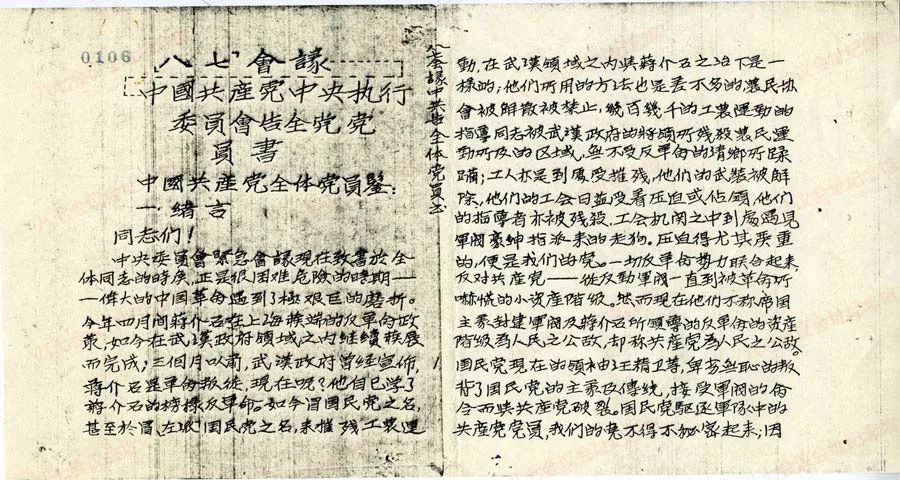 0106
八七會議
中國共産党中央执行
委員會告全党党
員書
中國共産党全体党員鑒:
一 緒言
同志们！
中央委員會緊急會議現在致書於全
体同志的時候,正是很困难危險的時期一
一偉大的中国革命遇到了極艰巨的磨折。
今年四月间蔣介石在上海發端的反革命政
策,如今在武漢政府領域之内継續發展
而完成;三個月以前,武漢政府曾经宣佈,
蔣介石是革命叛徒,現在呢?他自已学了
蔣介石的榜樣反革命。如今冒国民党之名,
甚至於冒"左派"国民党之名,来摧残工農運
中共告全体党員書
動,在武漢領域之内與蔣介石之治下是一
樣的;他们所用的方法也是差不多的,農民协
會被解散被禁止;幾百幾千的工農運動的
指導同志被武漢政府的將領所殘殺農民運
動所及的区域,無不受反革命的清鄉所蹂
躪;工人亦是到處受摧残,他们的武裝被解
除,他们的工会日益受着压迫或佔領,他们
的指導者亦被残殺,工会机関之中到處遇見
軍閥豪紳指派来的走狗。压迫得尤其严重
的,便是我们的党。一切反革命势力联合起来,
反对共産党——従反動軍閥一直到被革命所
嚇慌的小资産階级。然而現在他们不称帝国
主義封建軍閥及蔣介石所領導的反革命的资産
階级為人民之公敌,却称共産党為人民之公敌。
国民党現在的領袖汪精卫等,卑劣無恥的叛
背了国民党的主義及傳統,接受軍閥的命
令而與共産党破裂。国民党驱逐軍隊中的
共産党党員,我们的党不得不秘密起来;因